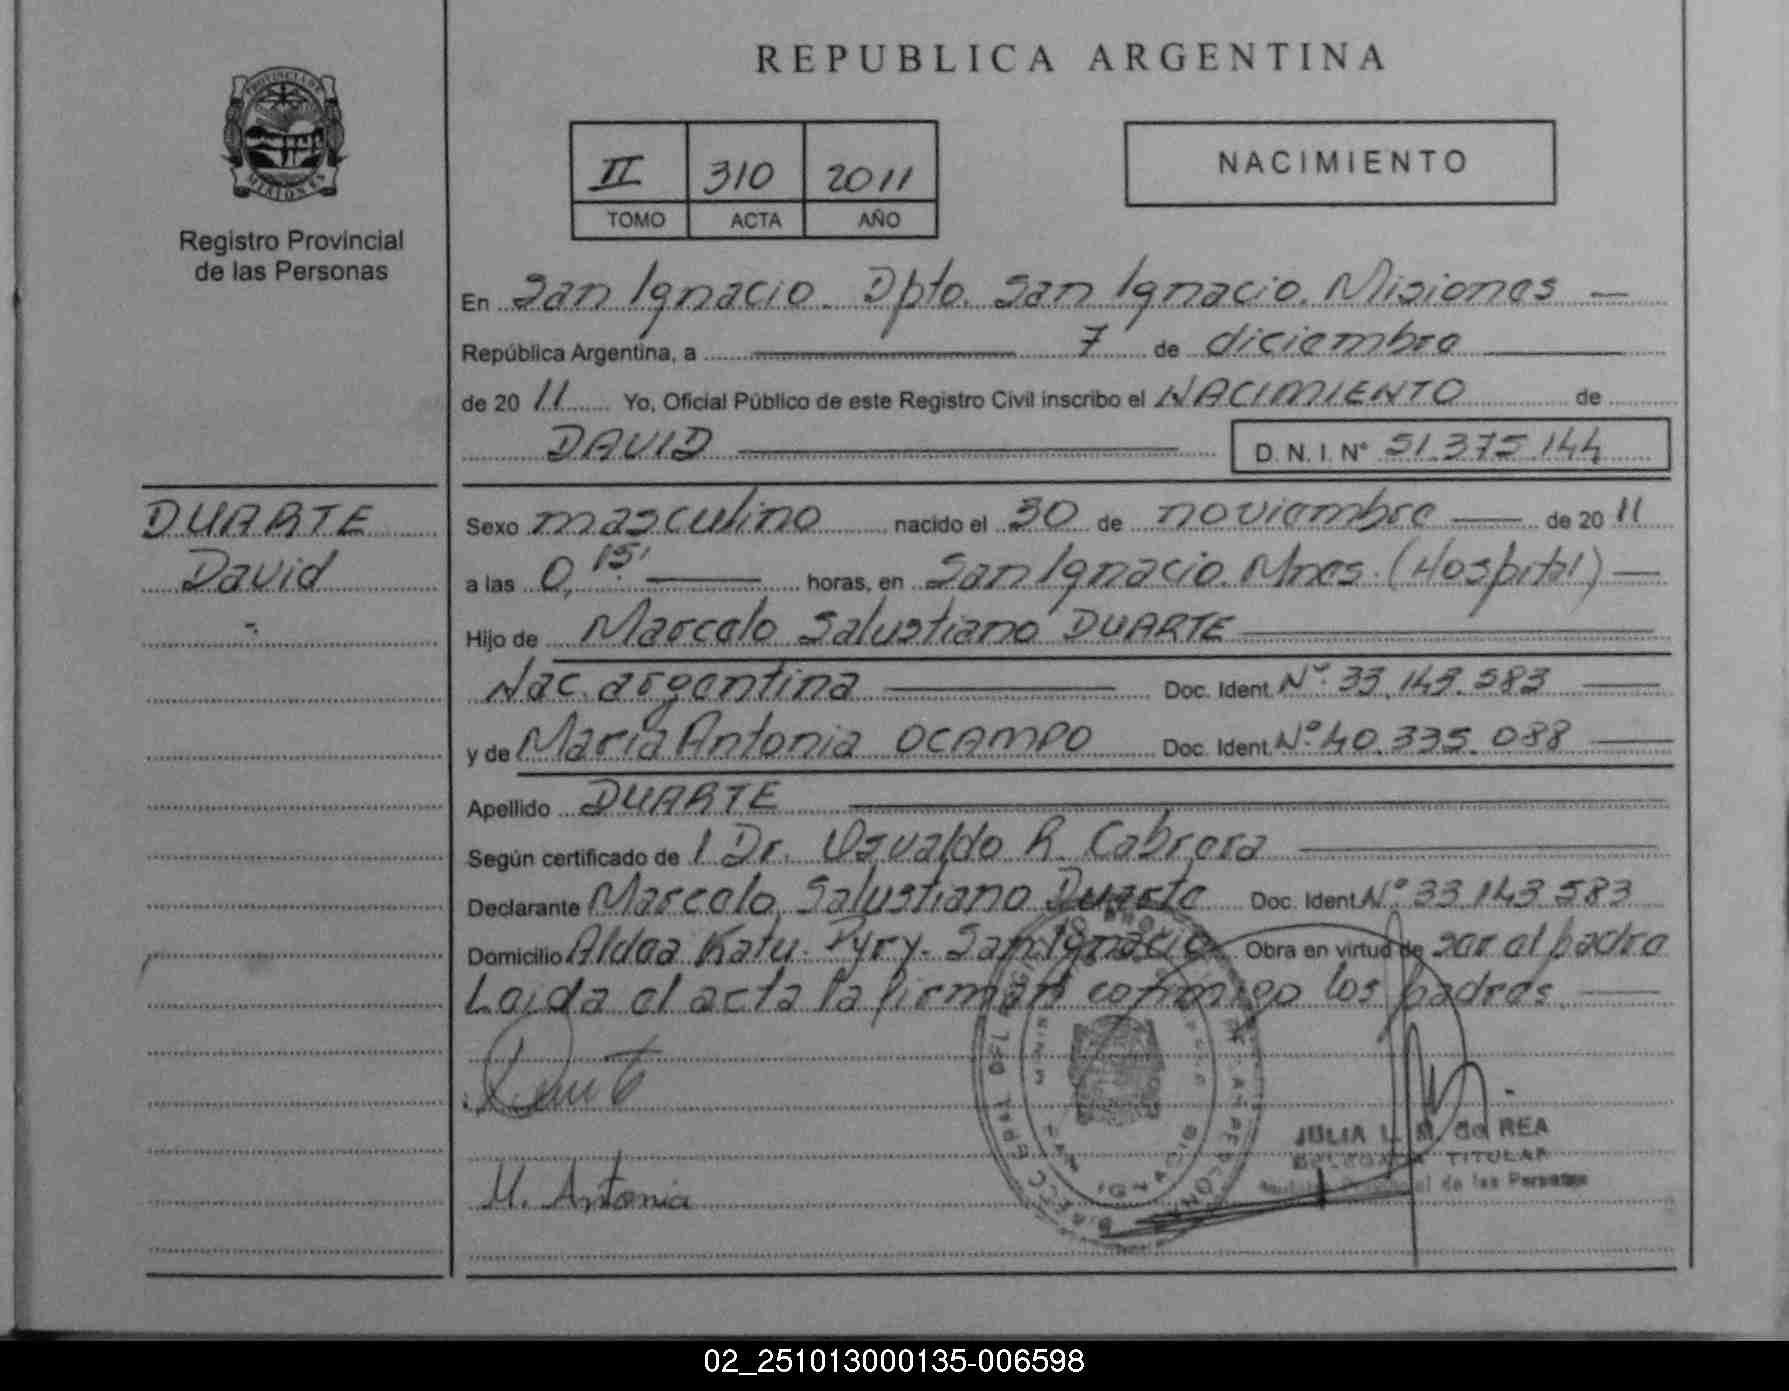 REPUBLICA ARGENTINA
PROVINCIA DE MISIONES
Registro Provincial
de las Personas
II 310 2011
TOMO ACTA AÑO
NACIMIENTO
En San Ignacio. Dpto. San Ignacio. Misiones
República Argentina, a 7 de diciembre
de 20 11 Yo, Oficial Público de este Registro Civil inscribo el NACIMIENTO de
DAVID D. N. I. Nº 51.375.144
DUARTE
David
Sexo masculino nacido el 30 de noviembre de 20 11
a las 0,15' horas, en San Ignacio. Mnes. (Hospital)
Hijo de Marcelo Salustiano DUARTE
Nac. argentina Doc. Ident. Nº 33.143.583
y de María Antonia OCAMPO Doc. Ident. Nº 40.335.088
Apellido DUARTE
Según certificado de l Dr. Osvaldo R. Cabrera
Declarante Marcelo Salustiano Duarte Doc. Ident. Nº 33.143.583
Domicilio Aldea Katu. Pyry. San Ignacio Obra en virtud de ser el padre
Leída el acta la firman conmigo los padres.
M. Antonia
JULIA L. M. de REA
DELEGADA TITULAR
Registro Provincial de las Personas
02_251013000135-006598